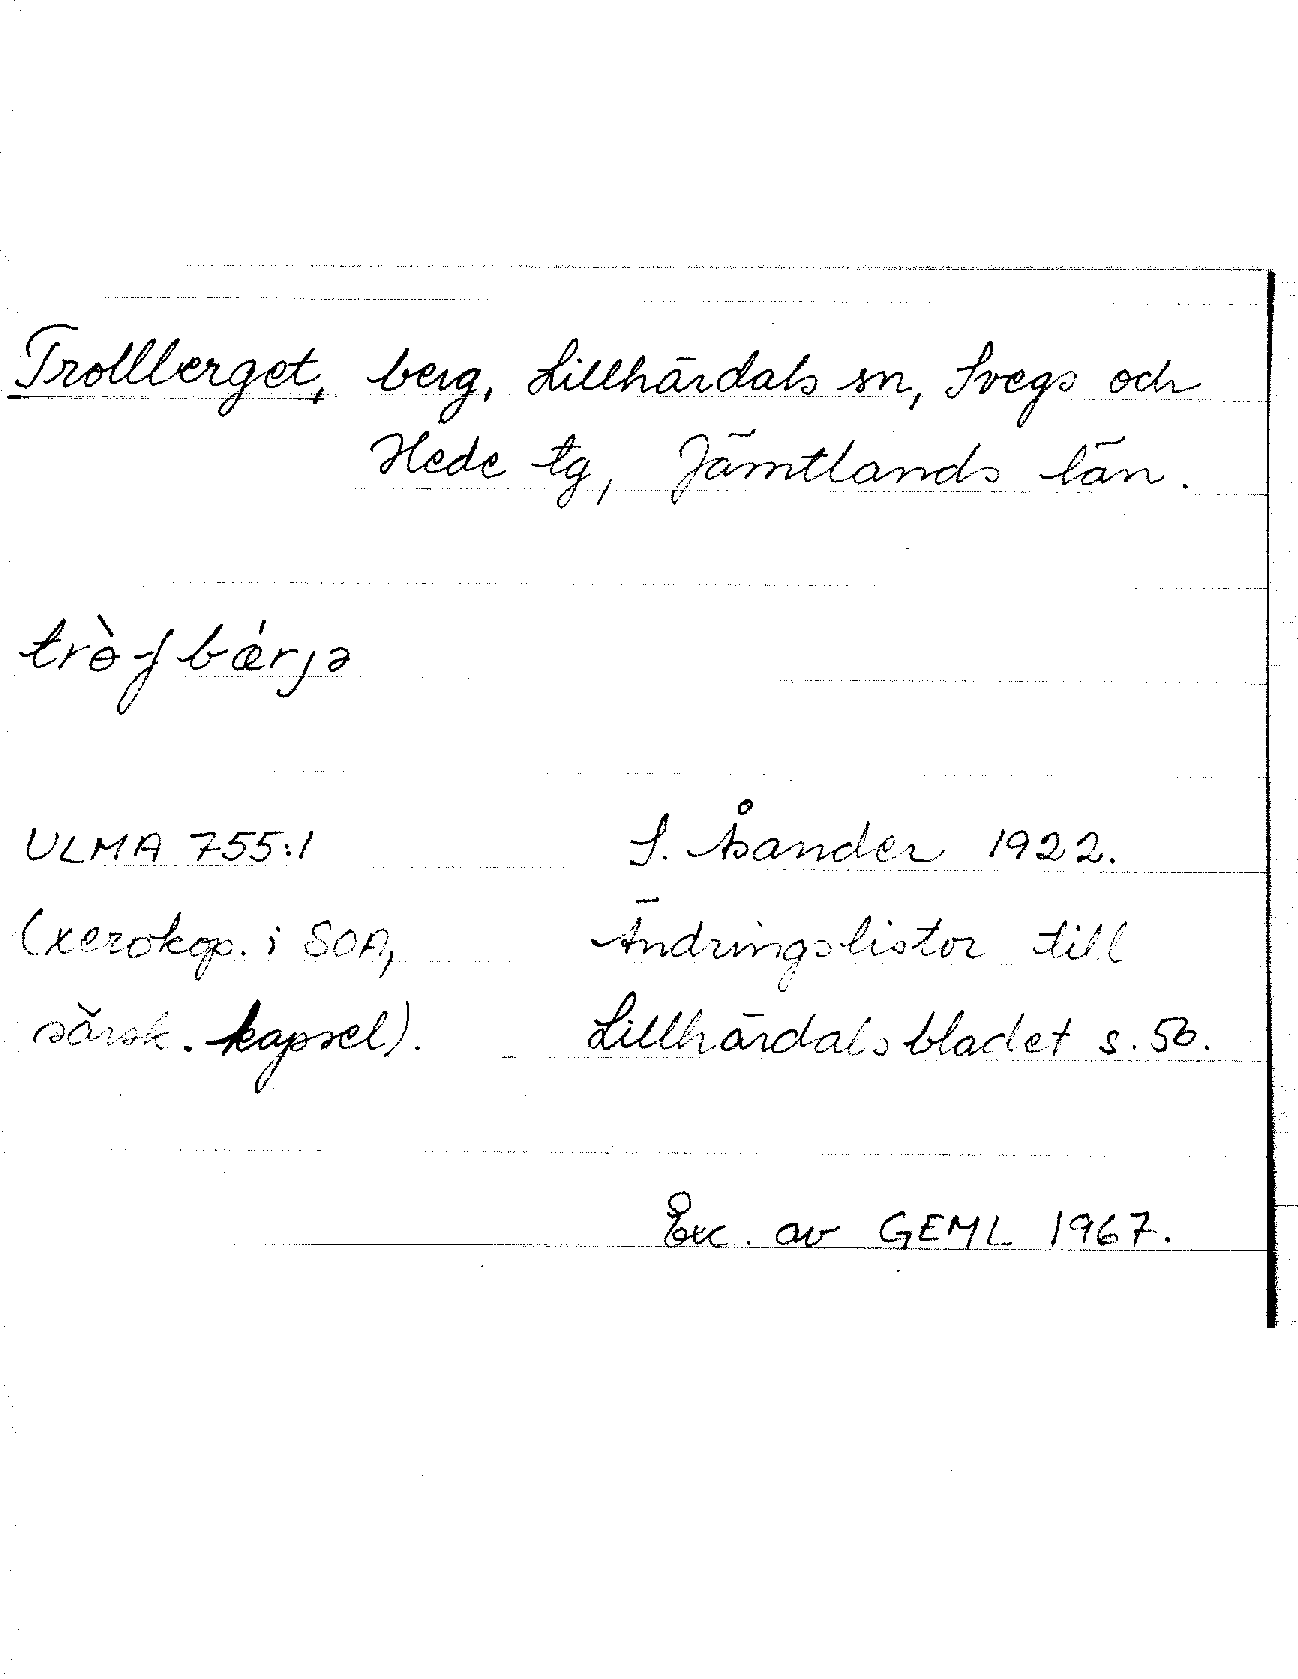 Trollberget, berg, Lillhärdals sn, Svegs och
Hede tg, Jämtlands län.
ULMA 755:1 S. Åsander 1922.
(xerokop. i SOA, Ändringslistor till
särsk. kapsel). Lillhärdalsbladet s. 50.
Exc. av GEML 1967.